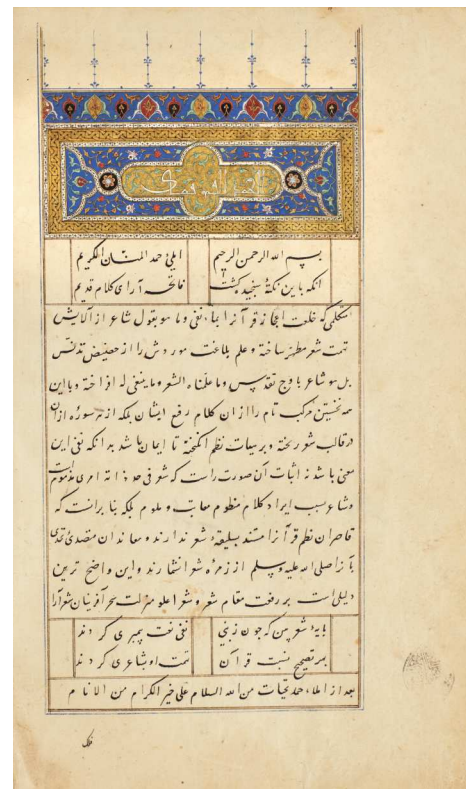 بسم الله الرحمن الرحیم املی حمد المنان الکریم
انکه باین نکتهٔ سنجیده گشت فاتحه آرای کلام قدیم
متکلمی که خلعت اعجاز قرآنرا نفی وما هو بقول شاعر از آلایش
تهمت شعر مطهر ساخته و علم بلاغت موردش را از حضیض تدنس
بل هو شاعر باوج تقدس وما علمناه الشعر وما ینبغی له افراخته و با این
همه نخستین مرکب تام را از ان کلام رفیع ایشان بلکه از هر سوره ازان
در قالب شعر ریخته و بر هیات نظم انگیخته تا ایما باشد بر انکه نفی این
معنی باشد نه اثبات آن صورت راست که شعر فی حد ذاته امری مذموم است
و شاعر بسبب ایراد کلام منظوم معاتب و ملوم بلکه بنا برانست که
قاصران نظم قرآن را مستند بسلیقه شعر ندارند و معاندان متصدی تحدی
بآنرا صلی الله علیه وسلم از زمره شعرا نشمارند و این واضح ترین
دلیلی است بر رفعت مقام شعر و شعرا و علو منزلت سحر آفرینان شعر آرا
پایه شعر بین که چون ز نبی نفی نعت پیمبری کردند
بهر تصحیح نسبت قرآن تهمت او بشاعری کردند
بعد از املاء حمد تحیات من الله السلام علی خیر الکرام من الانام